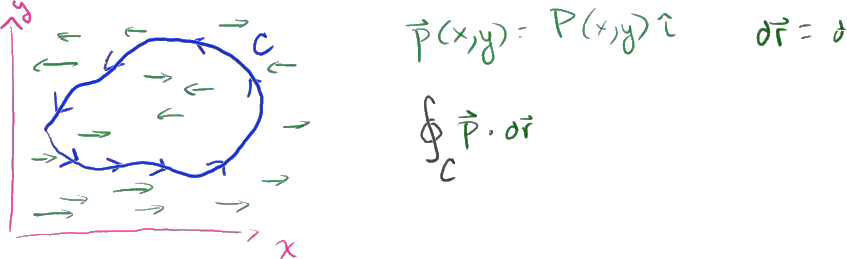 y
C
x
p⃗(x,y) = P(x,y) î
dr⃗ = d
∮_C p⃗ · dr⃗